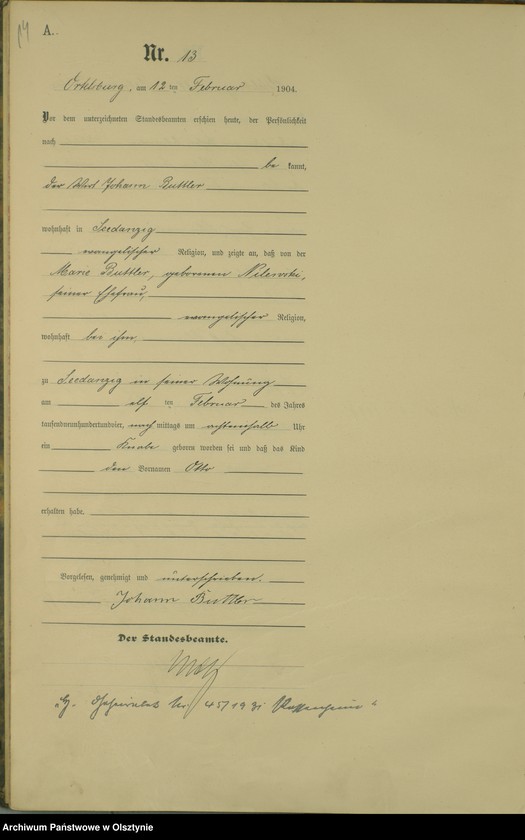 14
A.
Nr. 13
Ortelsburg, am 12 ten Februar 1904.
Vor dem unterzeichneten Standesbeamten erschien heute, der Persönlichkeit
nach
be kannt,
der Wirt Johann Buttler
wohnhaft in Seedanzig
evangelischer Religion, und zeigte an, daß von der
Marie Buttler, geborenen
seiner Ehefrau,
evangelischer Religion,
wohnhaft bei ihm,
zu Seedanzig in seiner Wohnung
am elf ten Februar des Jahres
tausendneunhundertundvier, nach mittags um achteinhalb Uhr
ein Knabe geboren worden sei und daß das Kind
den Vornamen Otto
erhalten habe.
Vorgelesen, genehmigt und unterschrieben.
Johann Buttler
Der Standesbeamte.
Nr. 45/1931
Archiwum Państwowe w Olsztynie